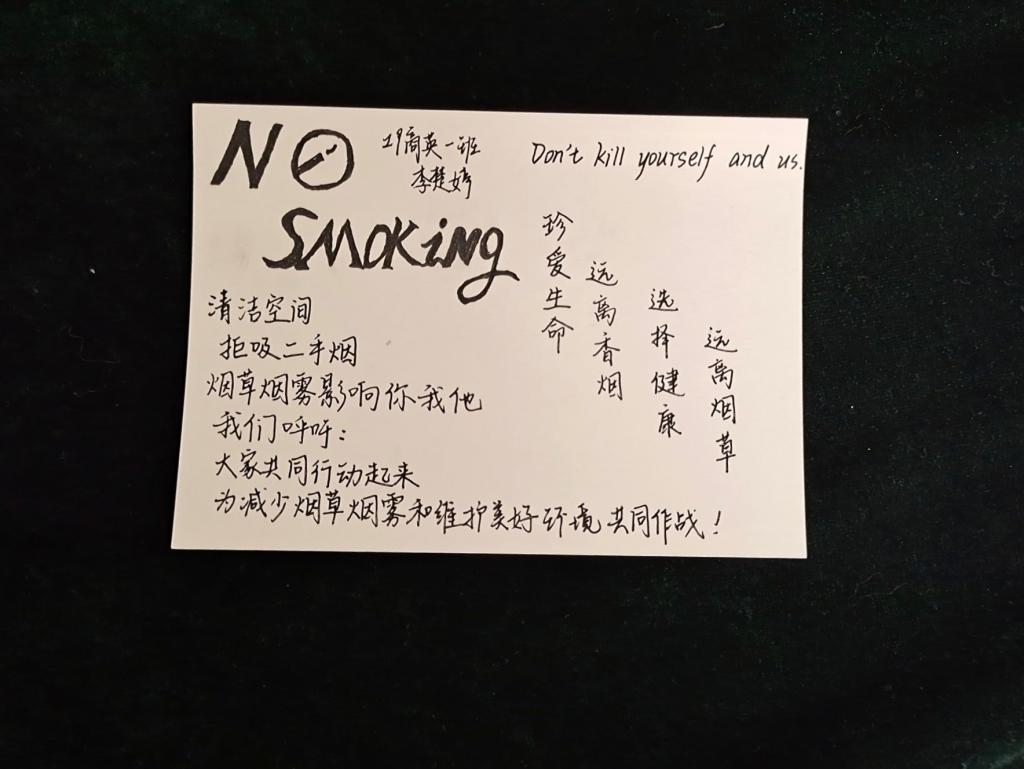 NO
19商英一班
李楚婷
Don't kill yourself and us.
SMOKING
珍爱生命
远离香烟
选择健康
远离烟草
清洁空间
拒吸二手烟
烟草烟雾影响你我他
我们呼吁：
大家共同行动起来
为减少烟草烟雾和维护美好环境共同作战！